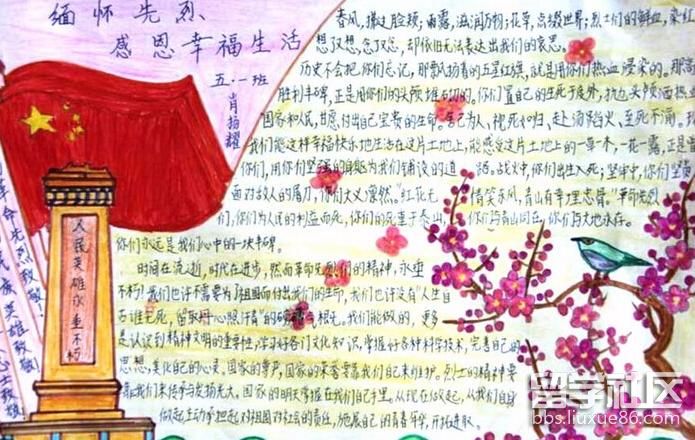 缅怀先烈
感恩幸福生活
五·一班
肖扬耀
春风,拂过脸颊;雨露,滋润万物;花草,点缀世界;烈士们的鲜血,染红
想又想,念又念,却依旧无法表达出我们的哀思。
历史不会把你们忘记,那飘扬着的五星红旗,就是用你们热血浸染的。那高
胜利丰碑,正是用你们的头颅堆砌的。你们置自己的生死于度外,抗也头颅洒热血
国家和人民,甘愿付出自己宝贵的生命。舍己为人、视死如归、赴汤蹈火、至死不渝。
我们能这样幸福快乐地生活在这片土地上,能感受这片土地上的一草一木,一花一露,正是
你们,用你们坚强的身躯为我们铺设的道路。战火中,你们出生入死;牢狱中,你们坚贞
面对敌人的屠刀,你们大义凛然。"红花无情笑东风,青山有幸埋忠骨。"革命先烈
们,你们为人民的利益而死,你们的死重于泰山,你们与青山同在,你们与大地永存。
你们永远是我们心中的一块丰碑。
时间在流逝,时代在进步,然而革命先烈们的精神,永垂
不朽!我们也许不需要为了祖国而付出我们的生命,我们也许没有"人生自
古谁无死,留取丹心照汗青"的
我们能做的,更多
是认识到精神文明的重要性,学习好各门文化知识,掌握好各种科学技术,完善自己的
思想,美化自己的心灵。国家的尊严,国家的荣誉靠我们自己来维护。烈士的精神要
靠我们来传承与发扬光大。国家的明天掌握在我们自己手里。从现在做起,从我们自身
做起,主动承担起对祖国对社会的责任,施展自己的青春年华,开拓进取。
人民英雄永垂不朽
革命先烈致敬!
民族英雄致敬!
留学社区
bbs.liuxue86.com